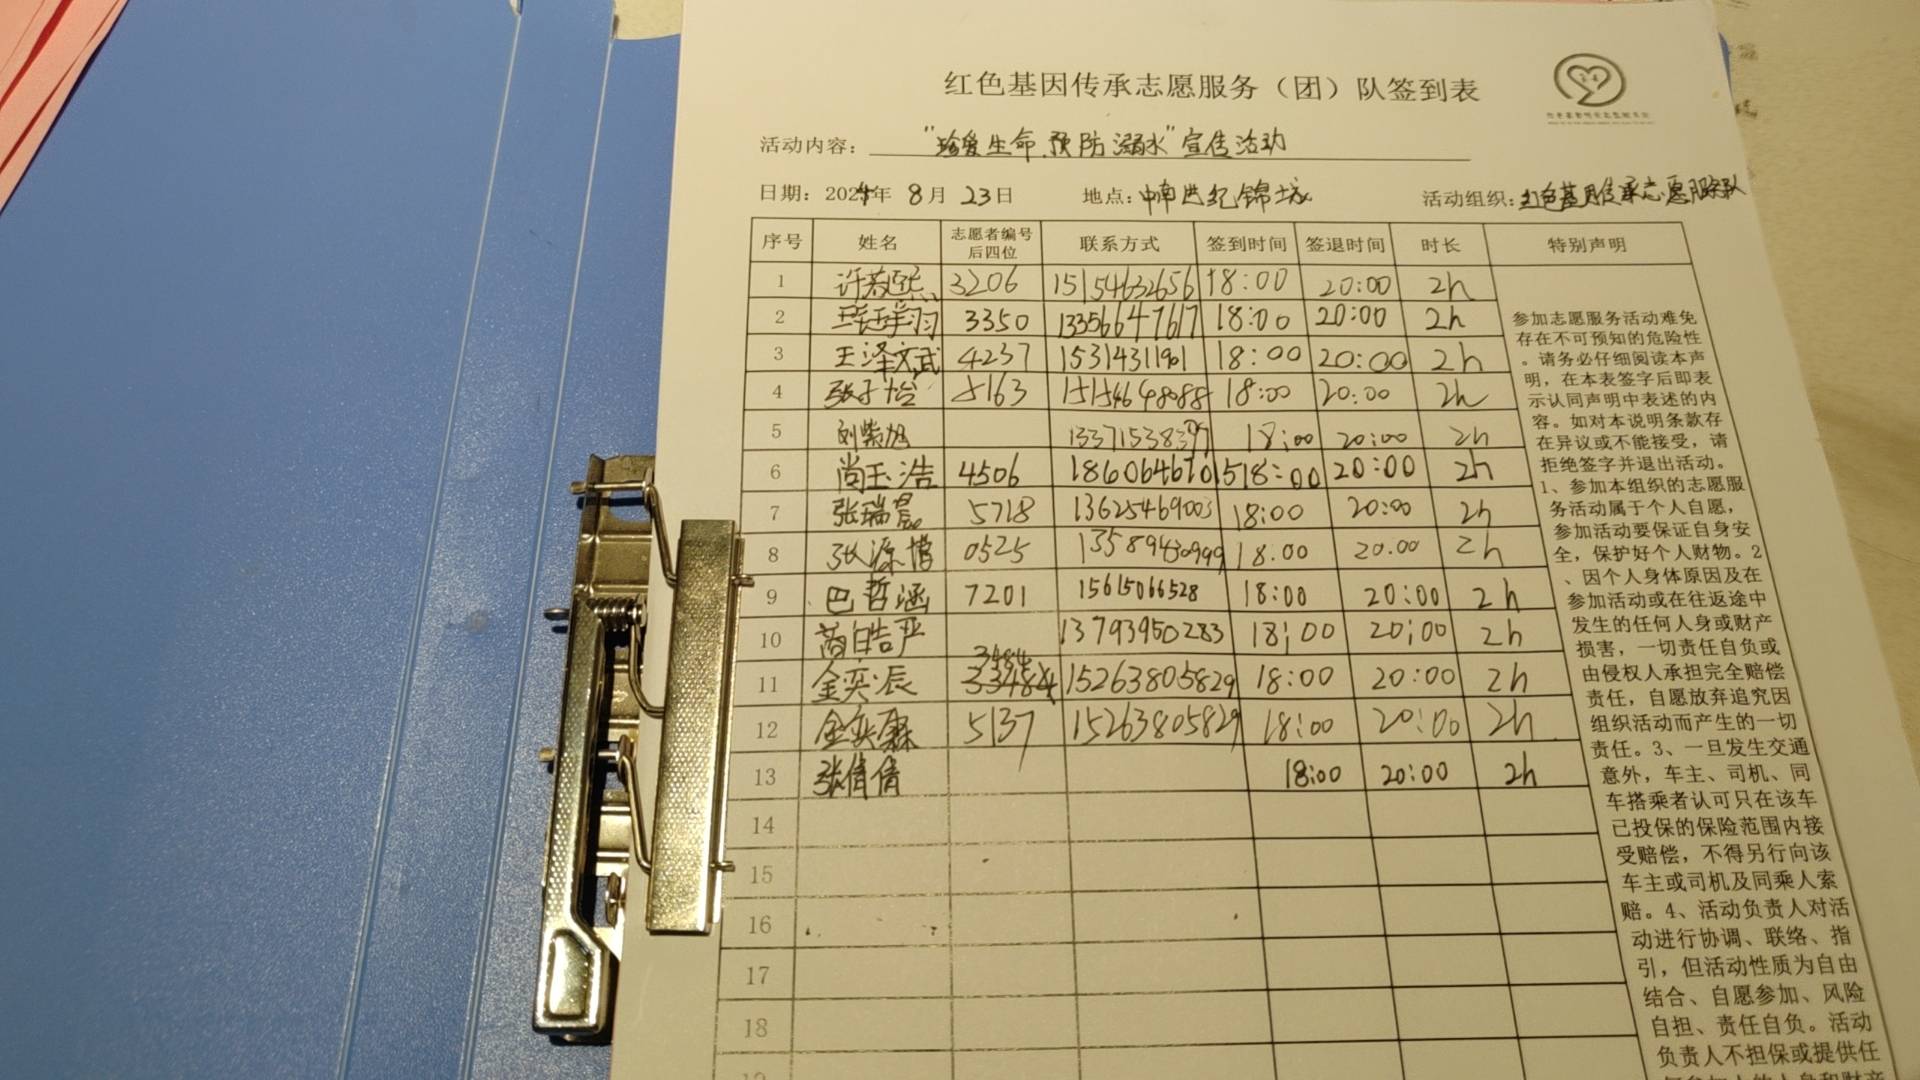 红色基因传承志愿服务（团）队签到表
活动内容：“珍爱生命 预防溺水”宣传活动
日期：2024年 8月 23日 地点：中南世纪锦城 活动组织：红色基因传承志愿服务队
序号 姓名 志愿者编号后四位 联系方式 签到时间 签退时间 时长 特别声明
1 3206 15154632656 18:00 20:00 2h
2 3350 13356647617 18:00 20:00 2h
3 王泽文武 4237 15314311901 18:00 20:00 2h
4 张子怡 5163 15154648088 18:00 20:00 2h
5 刘紫旭 18:00 20:00 2h
6 尚玉浩 4506 18606467015 18:00 20:00 2h
7 张瑞宸 5718 13625469003 18:00 20:00 2h
8 张源博 0525 13589430999 18:00 20:00 2h
9 巴哲涵 7201 15615066528 18:00 20:00 2h
10 13793950283 18:00 20:00 2h
11 金奕辰 15263805829 18:00 20:00 2h
12 金奕霖 5137 15263805829 18:00 20:00 2h
13 张倩倩 18:00 20:00 2h
14
15
16
17
18
参加志愿服务活动难免
存在不可预知的危险性
。请务必仔细阅读本声
明，在本表签字后即表
示认同声明中表述的内
容。如对本说明条款存
在异议或不能接受，请
拒绝签字并退出活动。
1、参加本组织的志愿服
务活动属于个人自愿，
参加活动要保证自身安
全，保护好个人财物。2
、因个人身体原因及在
参加活动或在往返途中
发生的任何人身或财产
损害，一切责任自负或
由侵权人承担完全赔偿
责任，自愿放弃追究因
组织活动而产生的一切
责任。3、一旦发生交通
意外，车主、司机、同
车搭乘者认可只在该车
已投保的保险范围内接
受赔偿，不得另行向该
车主或司机及同乘人索
赔。4、活动负责人对活
动进行协调、联络、指
引，但活动性质为自由
结合、自愿参加、风险
自担、责任自负。活动
负责人不担保或提供任